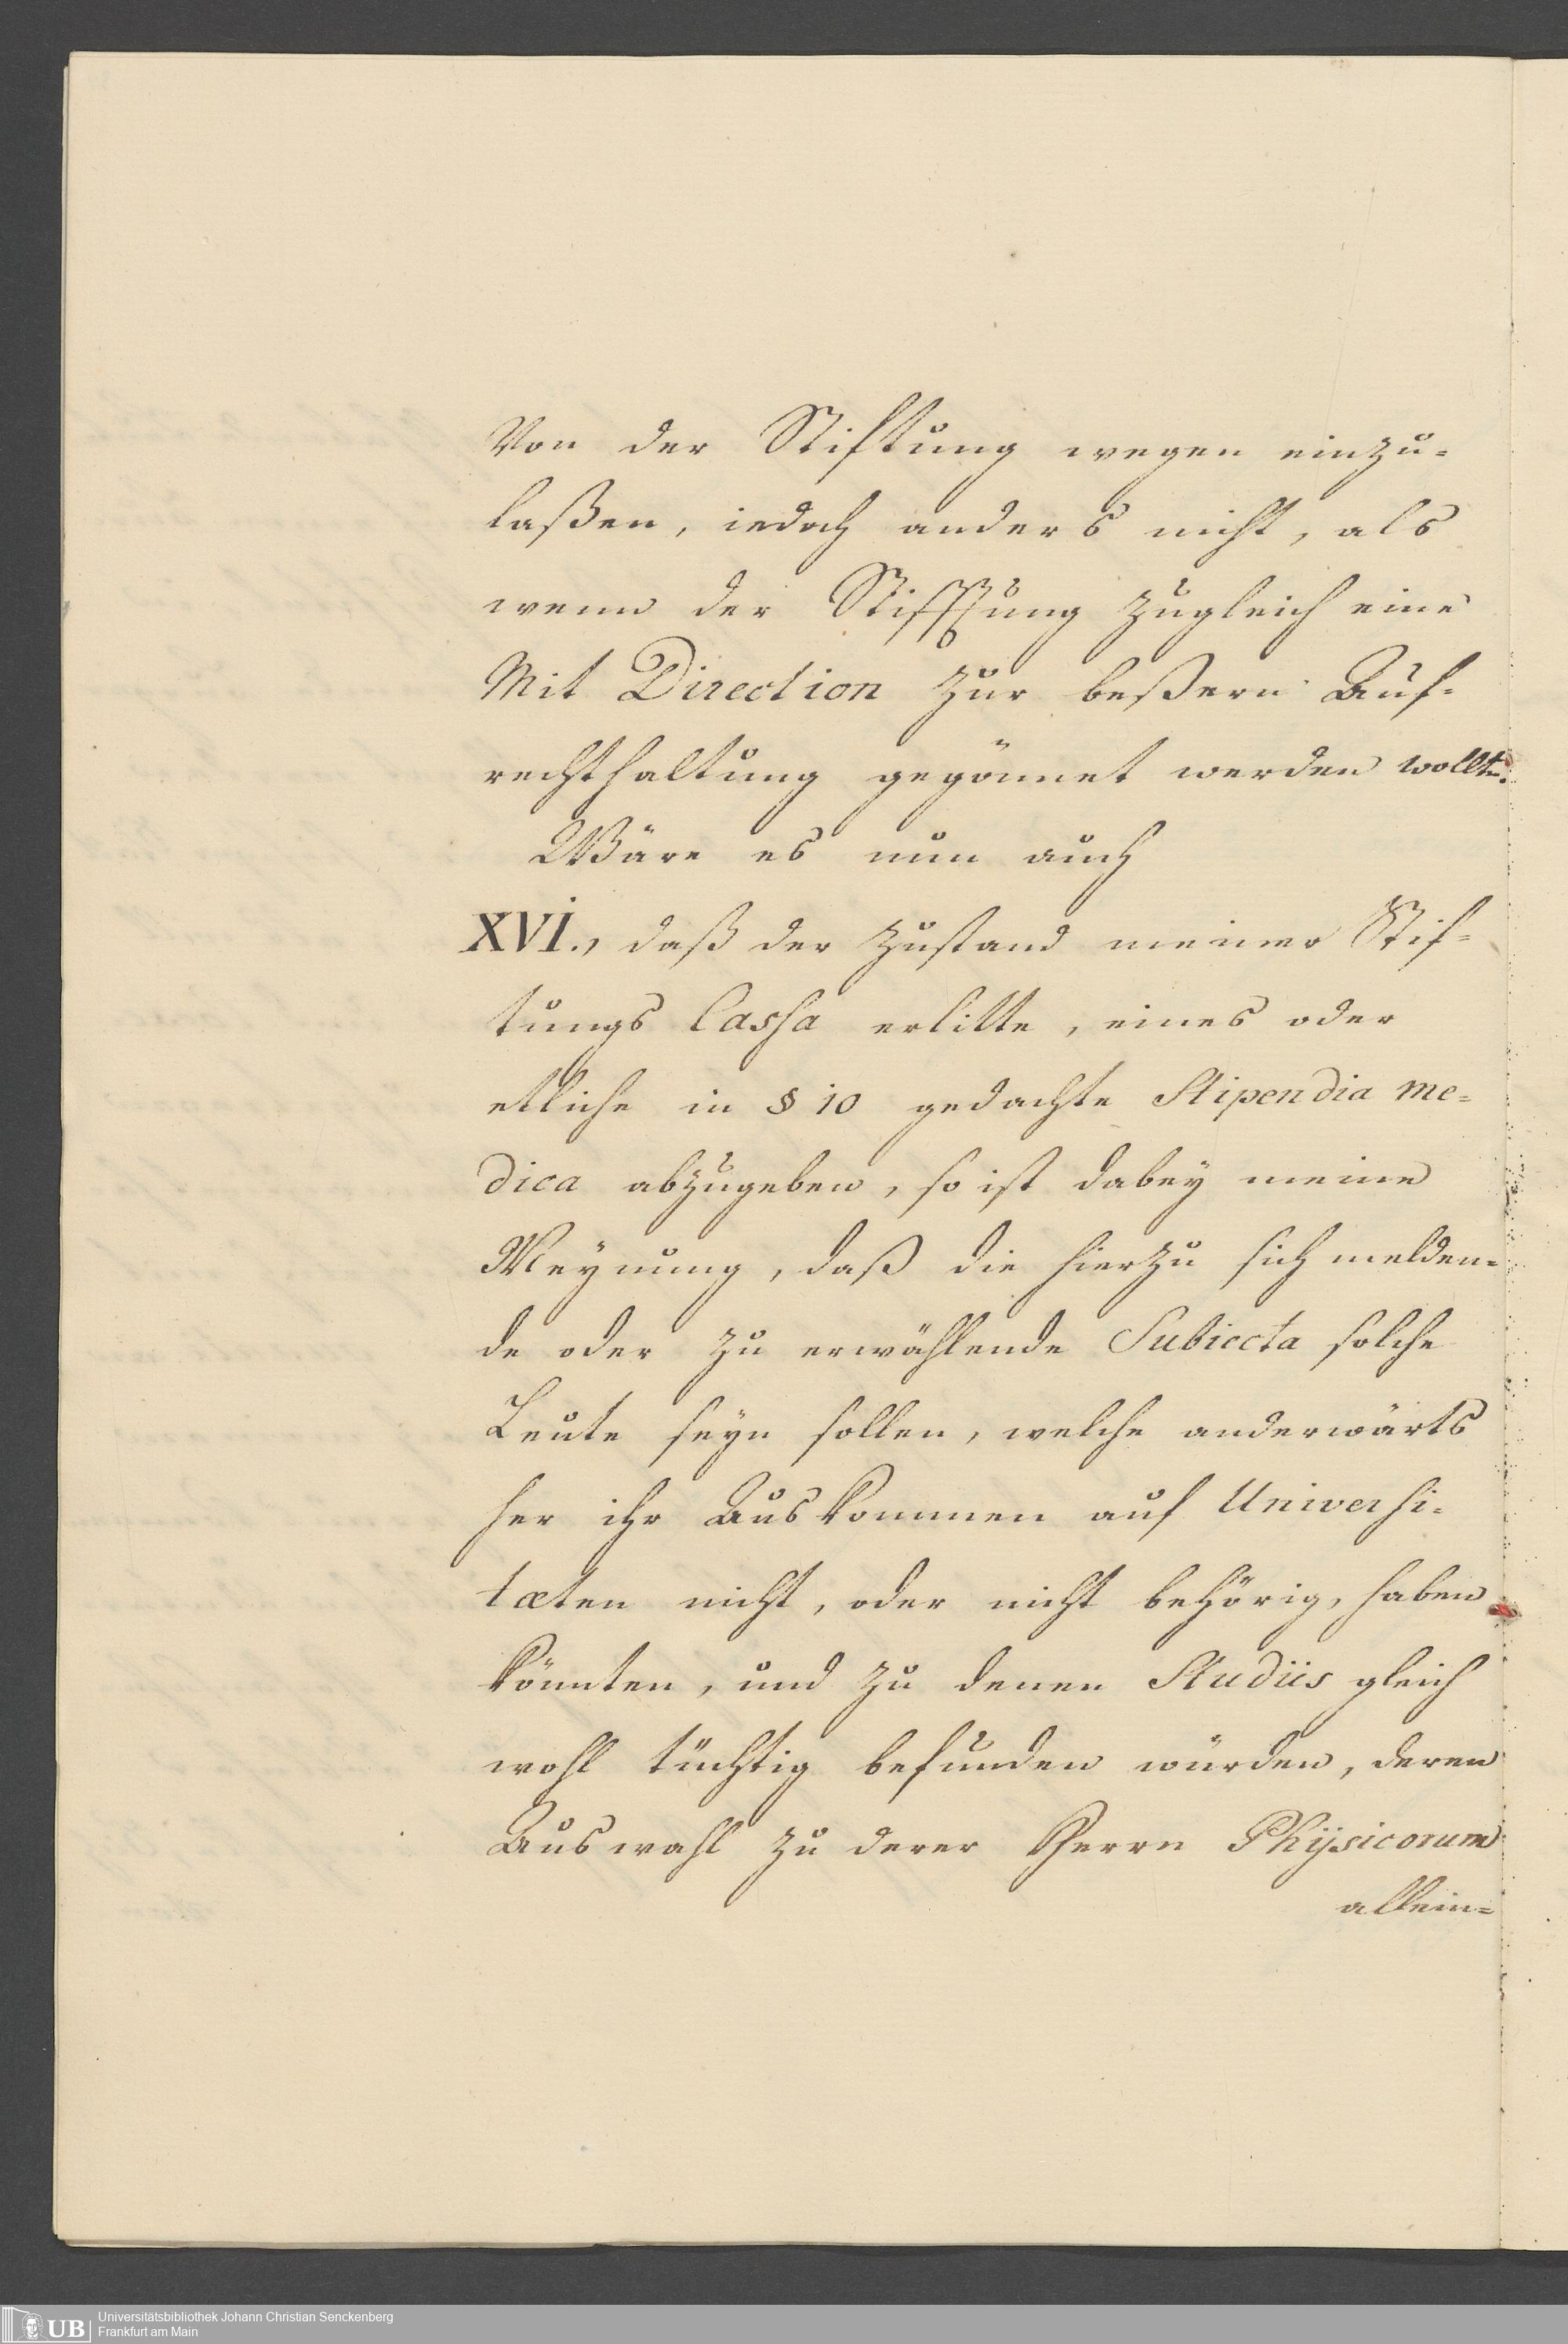 Von der Stiftung wegen einzu=
laßen, iedoch anders nicht, als
wenn der Stifftung zugleich eine
Mit Direction zur beßern Auf=
rechthaltung gegönnet werden wollte.
Wäre es nun auch
XVI., daß der Zustand meiner Stif=
tungs Cassa erlitte, eines oder
etliche in § 10 gedachte Stipendia me=
dica abzugeben, so ist dabey meine
Meynung, daß die hierzu sich melden=
de oder zu erwählende Subiecta solche
Leute seyn sollen, welche anderwärts
her ihr Auskommen auf Universi=
tæten nicht, oder nicht behörig, haben
könnten, und zu denen Studiis gleich
wohl tüchtig befunden würden, deren
Auswahl zu derer Herrn Physicorum
allein=
UB
Universitätsbibliothek Johann Christian Senckenberg
Frankfurt am Main